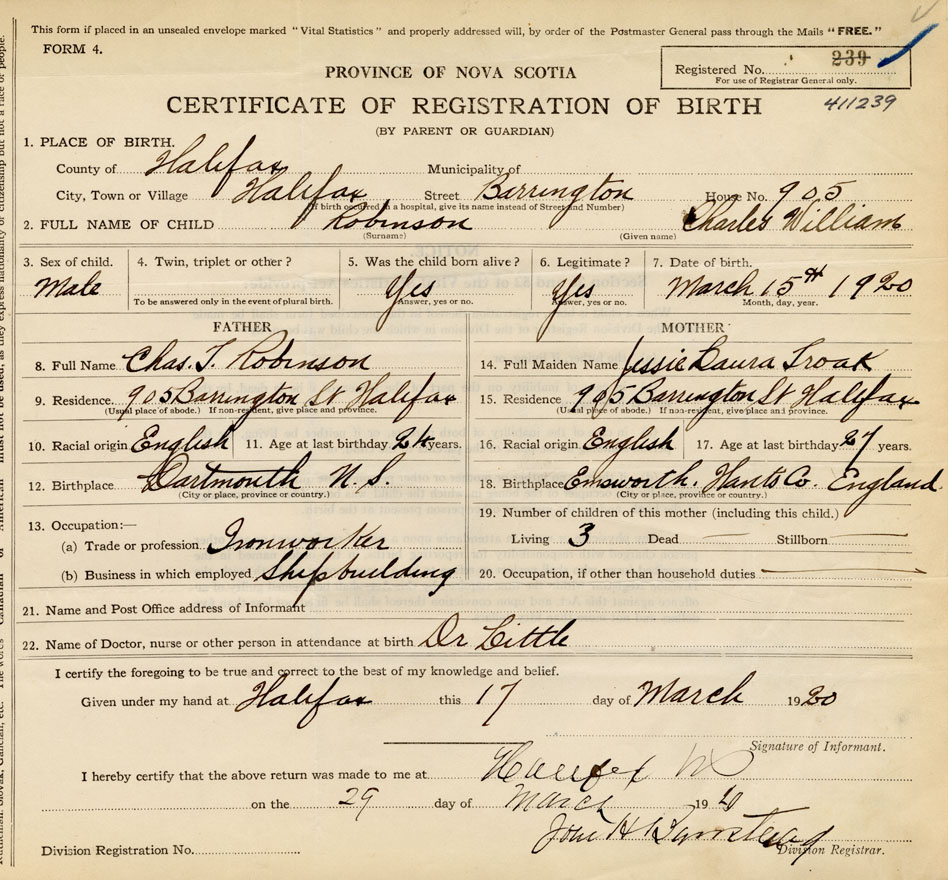 This form if placed in an unsealed envelope marked "Vital Statistics" and properly addressed will, by order of the Postmaster General pass through the Mails "FREE."
FORM 4.
Registered No. 239
For use of Registrar General only.
PROVINCE OF NOVA SCOTIA
CERTIFICATE OF REGISTRATION OF BIRTH 411239
(BY PARENT OR GUARDIAN)
1. PLACE OF BIRTH.
County of Halifax Municipality of
City, Town or Village Halifax Street Barrington House No. 905
(If birth occurred in a hospital, give its name instead of Street and Number)
2. FULL NAME OF CHILD Robinson Charles William
(Surname) (Given name)
3. Sex of child. 4. Twin, triplet or other? 5. Was the child born alive? 6. Legitimate? 7. Date of birth.
Male Yes Yes March 15th 1920
To be answered only in the event of plural birth. Answer, yes or no. Answer, yes or no. Month, day, year.
FATHER MOTHER
8. Full Name Chas. T. Robinson 14. Full Maiden Name Jessie Laura Troak
9. Residence 905 Barrington St Halifax 15. Residence 905 Barrington St Halifax
(Usual place of abode.) If non-resident, give place and province. (Usual place of abode.) If non-resident, give place and province.
10. Racial origin English 11. Age at last birthday years. 16. Racial origin English 17. Age at last birthday 27 years.
12. Birthplace Dartmouth N. S. 18. Birthplace Emsworth. Hants Co. England.
(City or place, province or country.) (City or place, province or country.)
13. Occupation:— 19. Number of children of this mother (including this child.)
(a) Trade or profession Ironworker Living 3 Dead — Stillborn —
(b) Business in which employed Shipbuilding 20. Occupation, if other than household duties —
21. Name and Post Office address of Informant
22. Name of Doctor, nurse or other person in attendance at birth Dr Little
I certify the foregoing to be true and correct to the best of my knowledge and belief.
Given under my hand at Halifax this 17 day of March 1920
Signature of Informant.
I hereby certify that the above return was made to me at Halifax
on the 29 day of March 19
John H Barnstead
Division Registration No. Division Registrar.